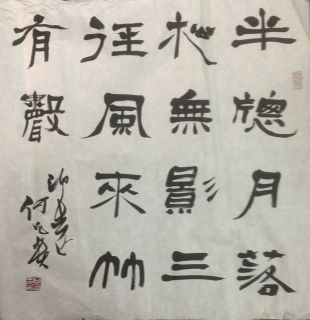 半牕月落
梅無影三
徑風來竹
有聲
何